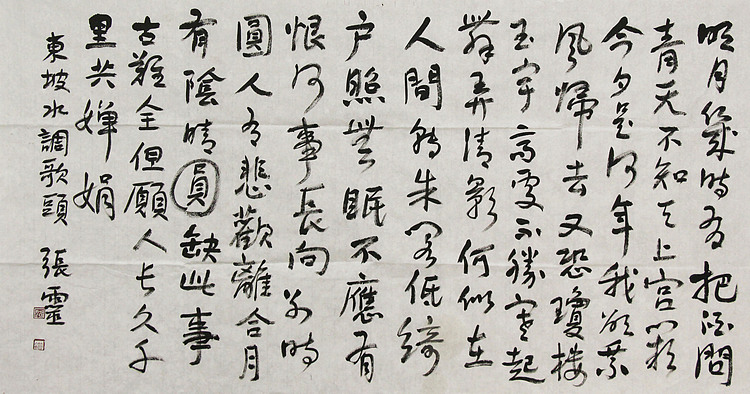 明月幾時有把酒問
青天不知天上宮闕
今夕是何年我欲乘
風歸去又恐瓊樓
玉宇高處不勝寒起
舞弄清影何似在
人間轉朱閣低綺
户照無眠不應有
恨何事長向別時
圓人有悲歡離合月
有陰晴圓缺此事
古難全但願人長久千
里共嬋娟
東坡水調歌頭 張靈